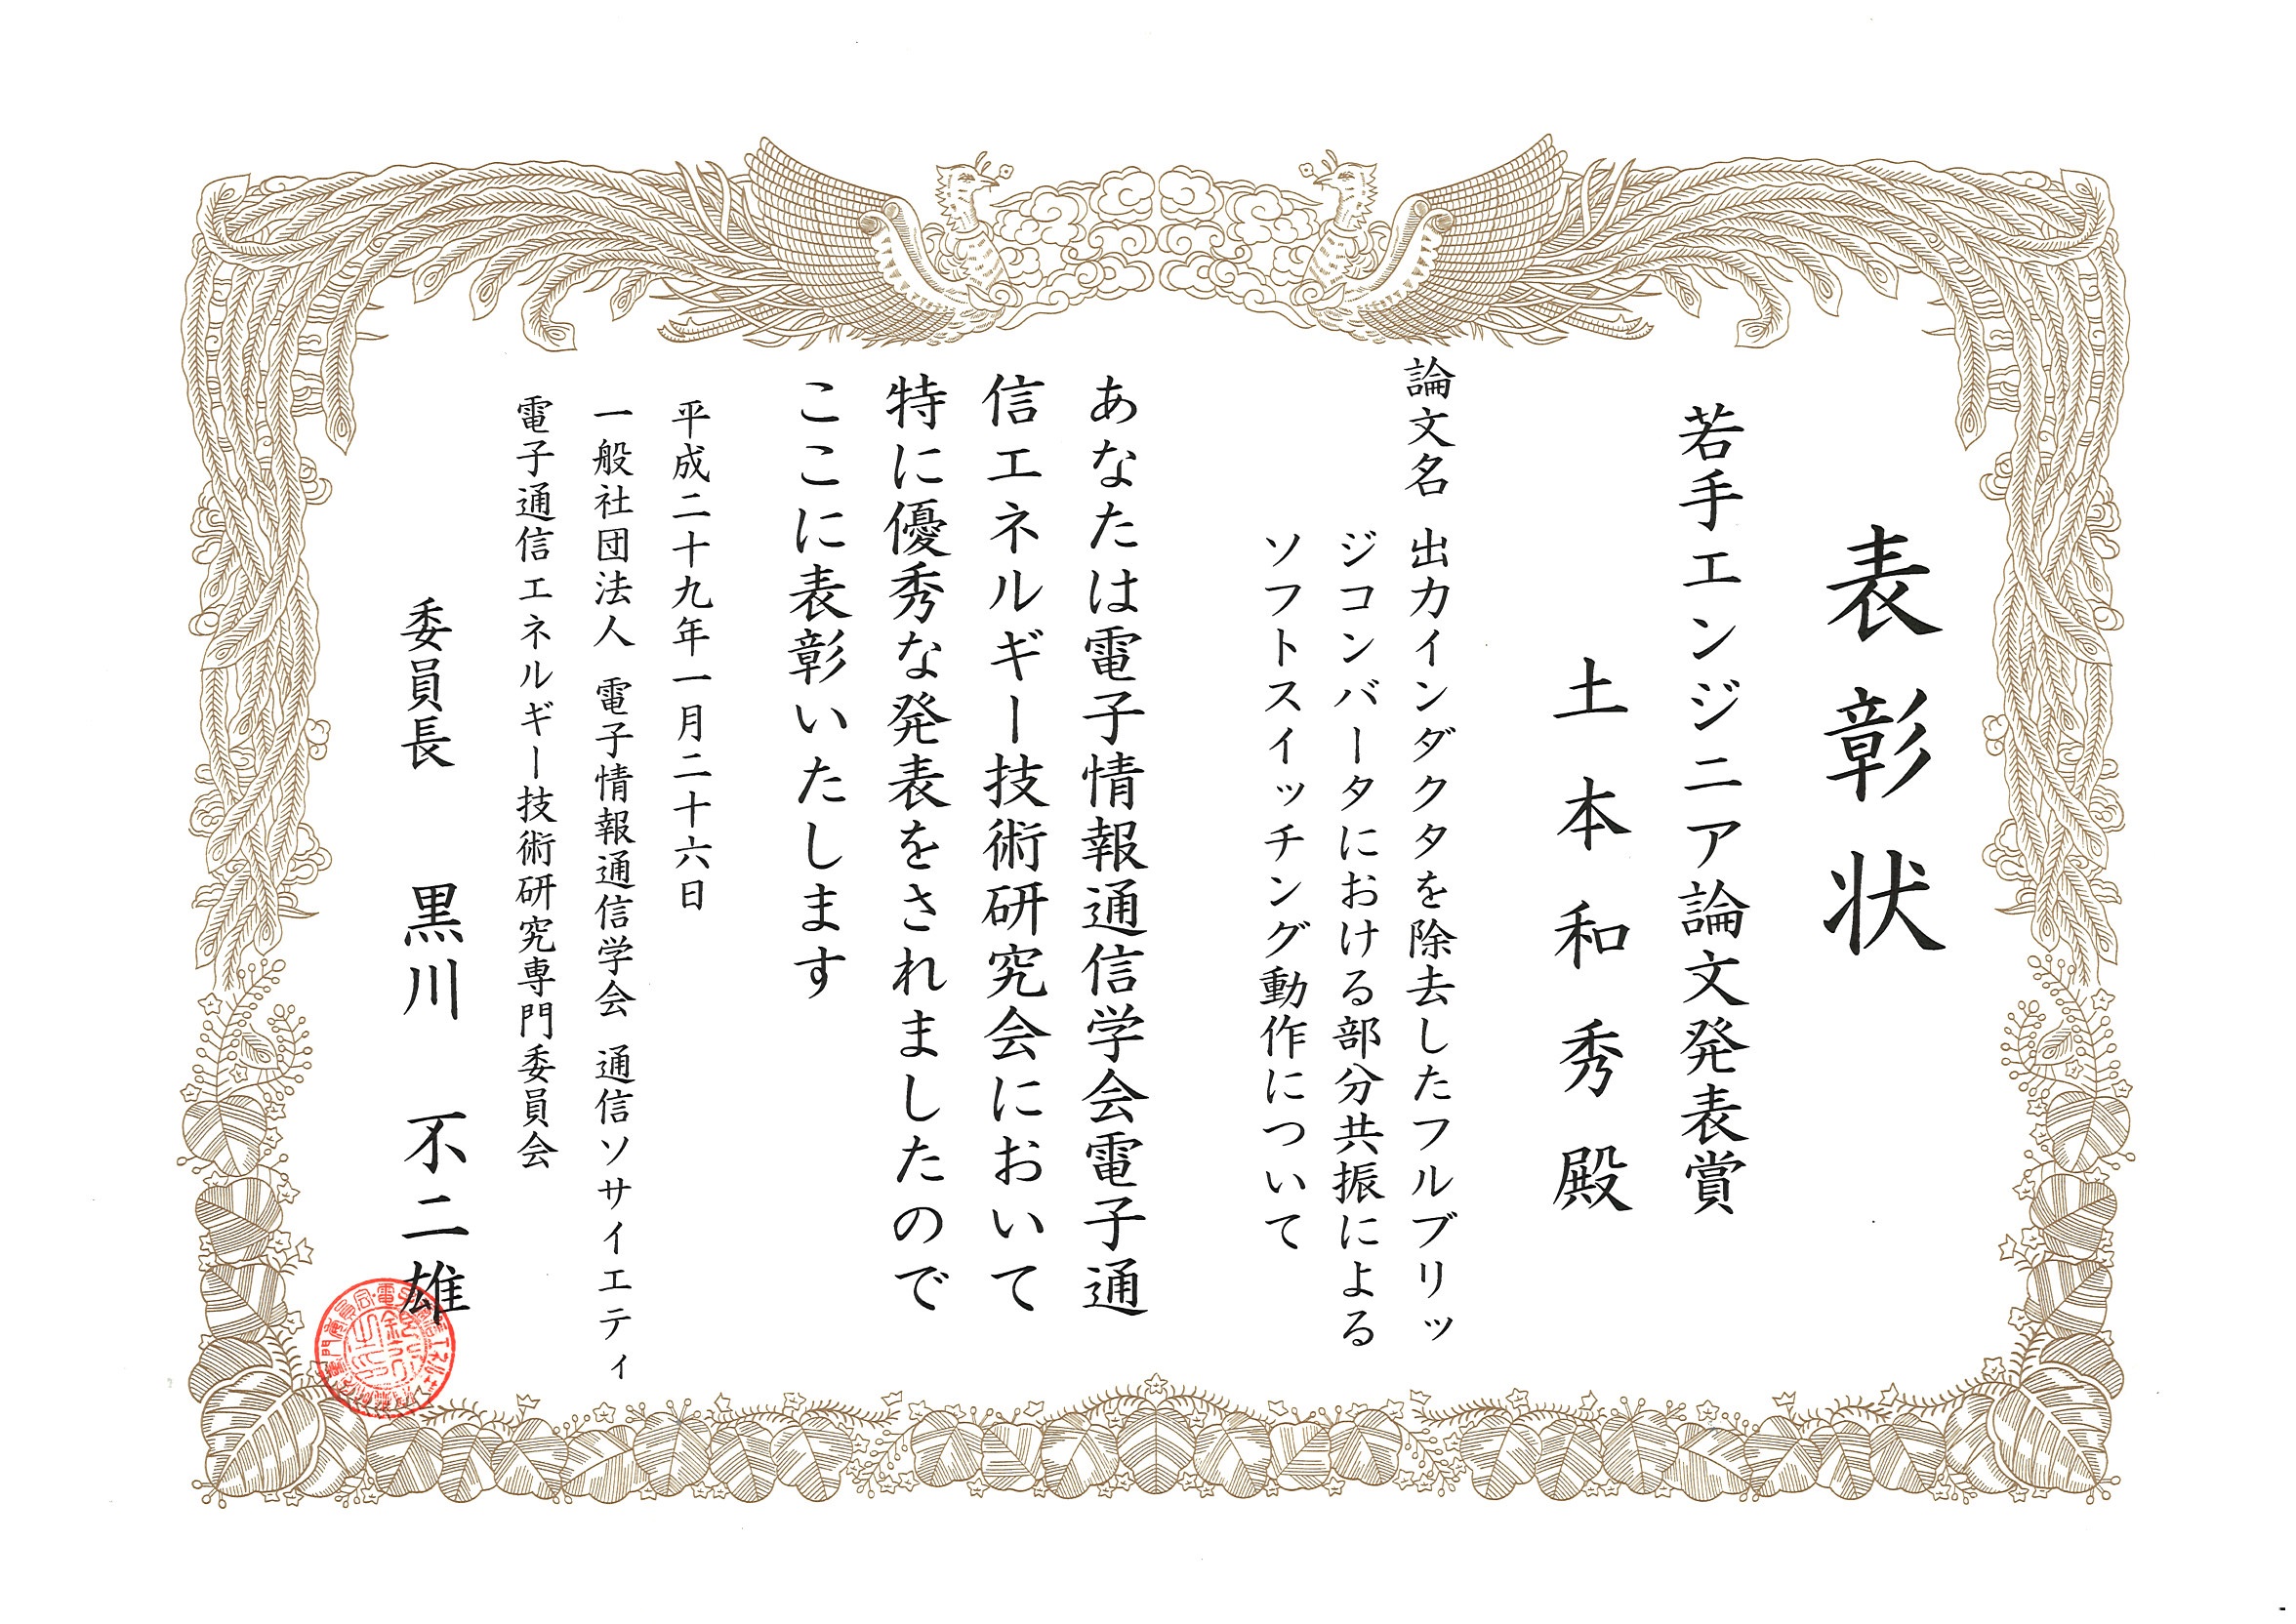 表彰状
若手エンジニア論文発表賞
土本和秀殿
論文名 出力インダクタを除去したフルブリッ
ジコンバータにおける部分共振による
ソフトスイッチング動作について
あなたは電子情報通信学会電子通
信エネルギー技術研究会において
特に優秀な発表をされましたので
ここに表彰いたします
平成二十九年一月二十六日
一般社団法人 電子情報通信学会 通信ソサイエティ
電子通信エネルギー技術研究専門委員会
委員長 黒川 不二雄